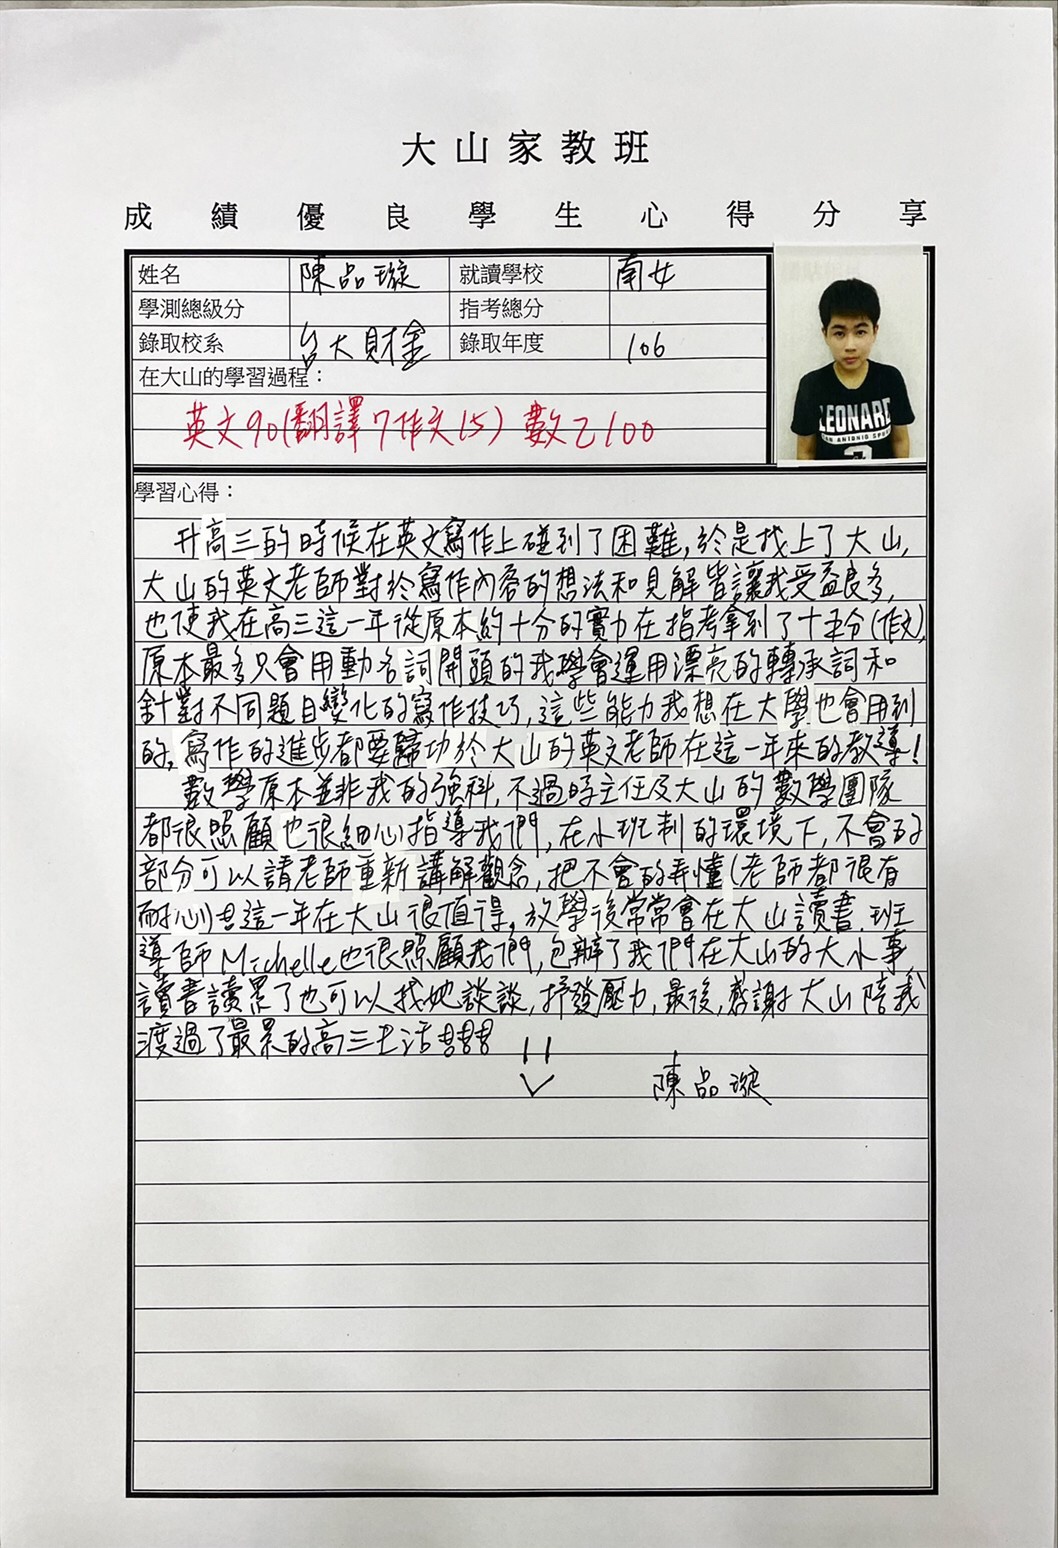 大山家教班
成績優良學生心得分享
姓名 陳品璇 就讀學校 南女
學測總級分 指考總分
錄取校系 台大財金 錄取年度 106
在大山的學習過程：
英文90(翻譯7作文15) 數乙100
LEONARD
SAN ANTONIO SPURS
2
學習心得：
升高三的時候在英文寫作上碰到了困難，於是找上了大山，
大山的英文老師對於寫作內容的想法和見解皆讓我受益良多，
也使我在高三這一年從原本約十分的實力在指考拿到了十五分(作文)，
原本最多只會用動名詞開頭的我學會運用漂亮的轉承詞和
針對不同題目變化的寫作技巧，這些能力我想在大學也會用到
的，寫作的進步都要歸功於大山的英文老師在這一年來的教導！
數學原本並非我的強科，不過時主任及大山的數學團隊
都很照顧也很細心指導我們，在小班制的環境下，不會的
部分可以請老師重新講解觀念，把不會的弄懂(老師都很有
耐心)這一年在大山很值得，放學後常常會在大山讀書，班
導師Michelle也很照顧我們，包辦了我們在大山的大小事，
讀書讀累了也可以找她談談，抒發壓力，最後，感謝大山陪我
渡過了最累的高三生活
陳品璇